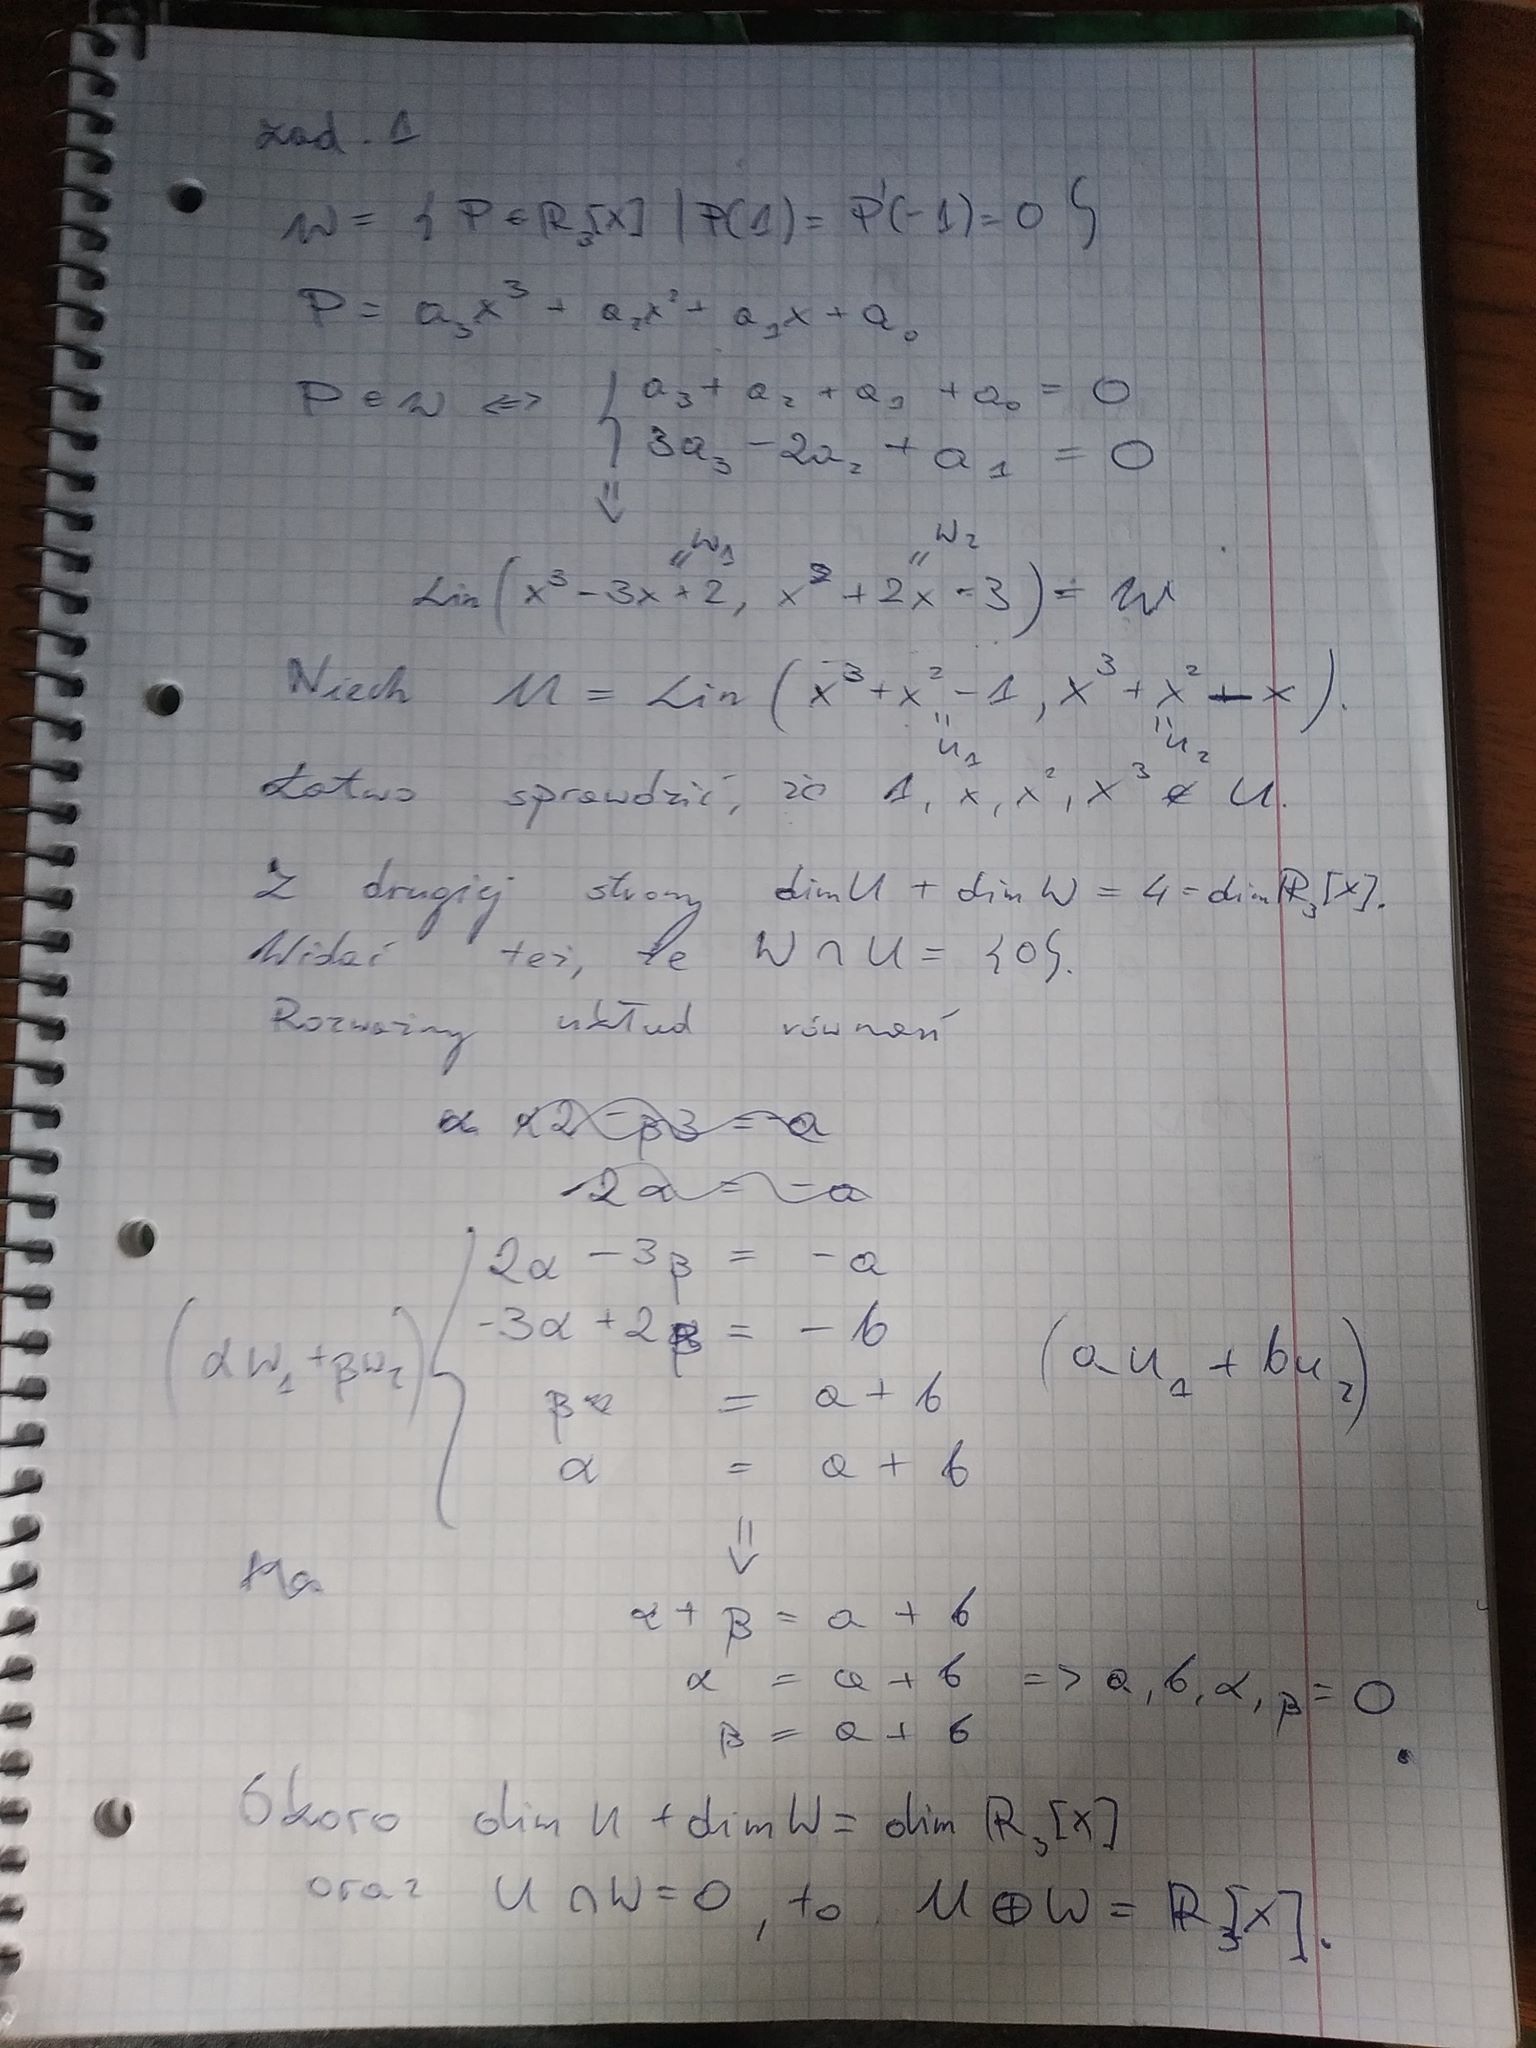 zad. 1
W = { P ∈ R₃[X] | P(1) = P'(-1) = 0 }
P = a₃x³ + a₂x² + a₁x + a₀
P ∈ W ⇔ { a₃ + a₂ + a₁ + a₀ = 0
3a₃ - 2a₂ + a₁ = 0
⇓
w₁ w₂
Lin ( x³ - 3x + 2, x² + 2x - 3 ) = W
Niech U = Lin ( x³ + x² - 1, x³ + x² - x ).
u₁ u₂
Łatwo sprawdzić, że 1, x, x², x³ ∉ U.
Z drugiej strony dim U + dim W = 4 = dim R₃[X].
Widać też, że W ∩ U = {0}.
Rozważmy układ równań
α α2 - β3 = -a
2α = -a
2α - 3β = -a
-3α + 2β = -b
(αw₁ + βw₂) { (au₁ + bu₂)
β = a + b
α = a + b
⇓
Ma
α + β = a + b
α = a + b => a, b, α, β = 0
β = a + b
Skoro dim U + dim W = dim R₃[X]
oraz U ∩ W = 0, to U ⊕ W = R₃[X].